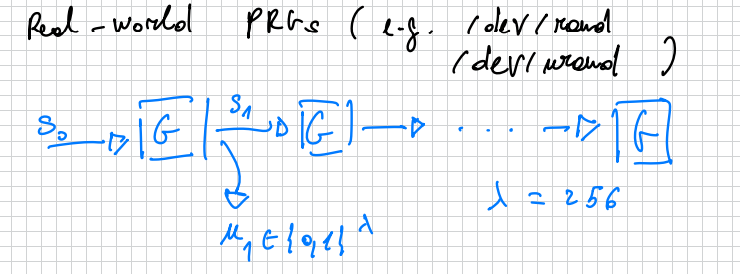 Real-world PRGs (e.g. /dev/rand
/dev/urand )
S₀ G S₁ G . . . G
λ = 256
μ₁ ∈ {0,1}^λ